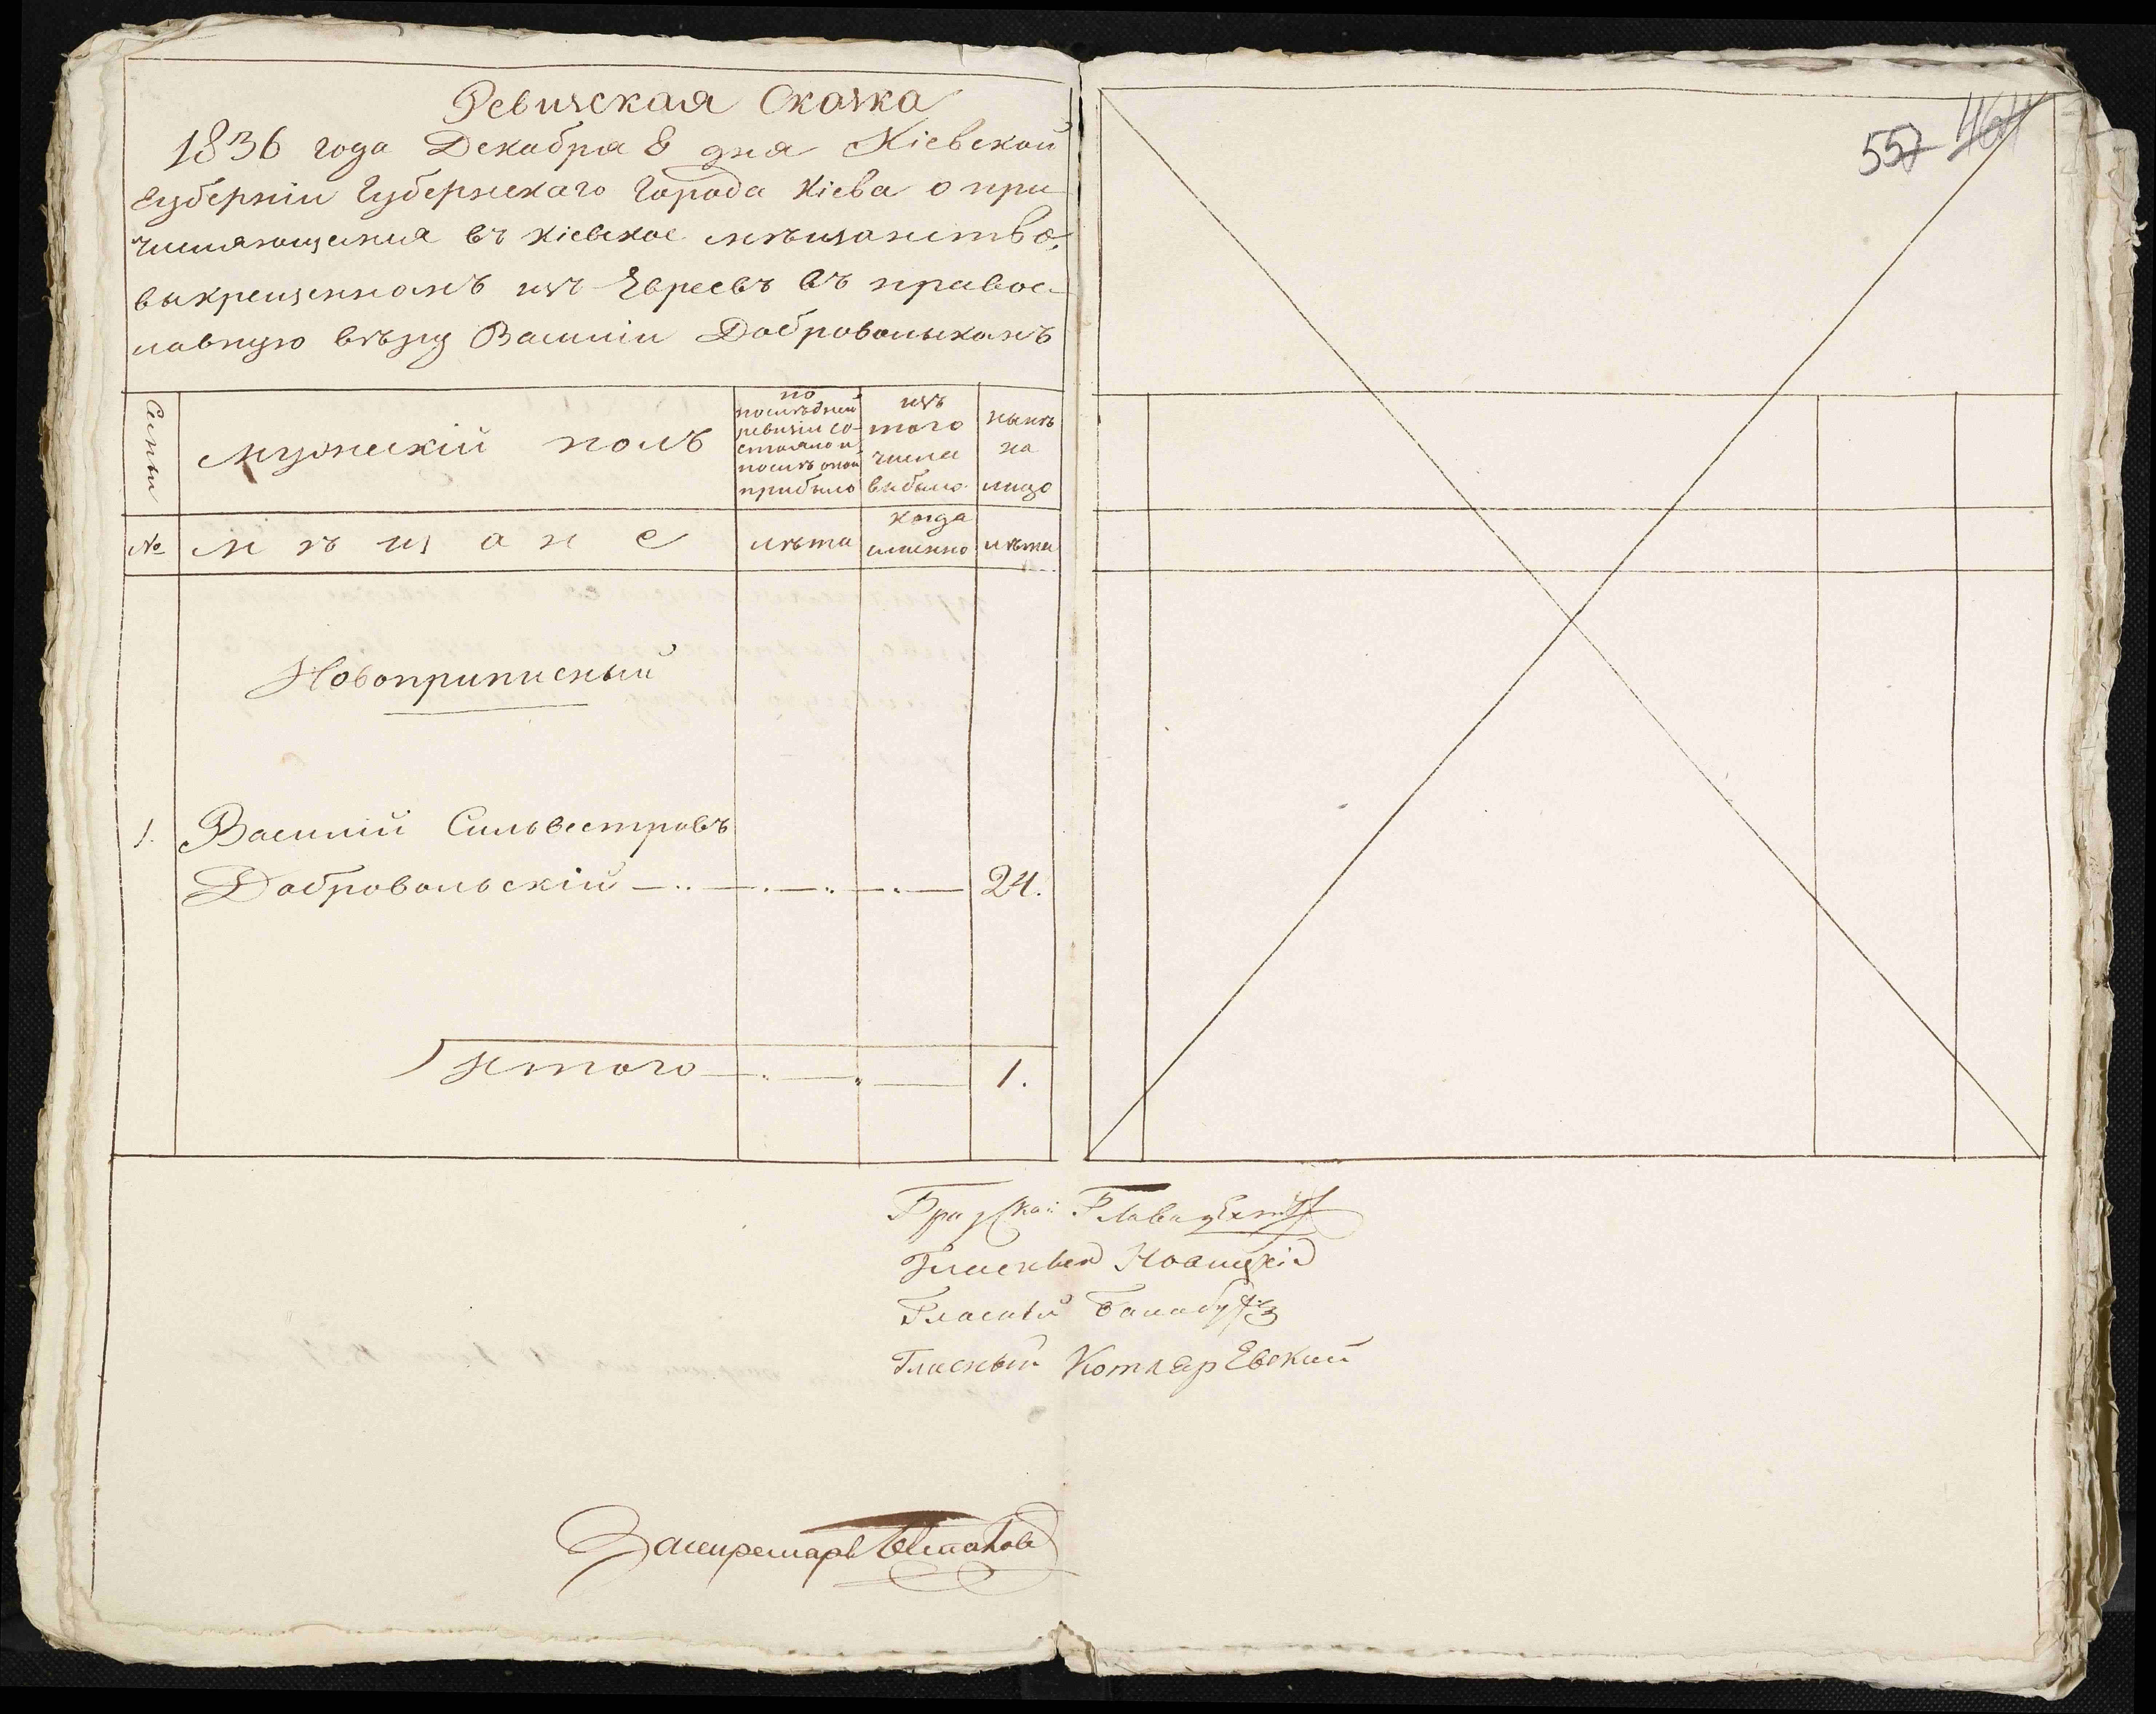 Ревизская Сказка
1836 года Декабря 8 дня Кіевской
Губерніи Губернскаго Города Кіева о при
числяющемся въ Кіевское мѣщанство,
выкрещенномъ изъ Евреевъ въ правос-
лавную вѣру Василіи Добровольскомъ
557 464
Семьи
мужескій полъ
по
послѣдней
ревизіи со-
стояло и
послѣ оной
прибыло
изъ
того
числа
выбыло
нынѣ
на
лицо
№
мѣщане
лѣта
когда
именно
лѣта
Новоприписный
1. Василій Сильвестровъ
Добровольскій 24.
Итого 1.
Градской Глава
Гласный Новицкій
Гласный Балабуха
Гласный КотлярЕвский
За секретаря